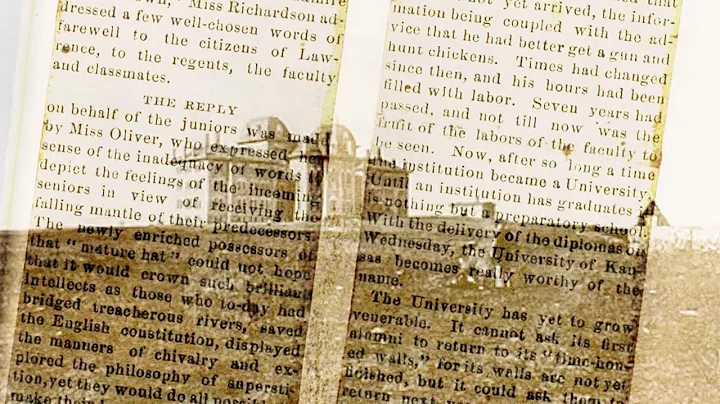 Miss Richardson ad
dressed a few well-chosen words of
farewell to the citizens of Law-
rence, to the regents, the faculty
and classmates.
THE REPLY
on behalf of the juniors was made
by Miss Oliver, who expressed her
sense of the inadequacy of words to
depict the feelings of the incoming
seniors in view of receiving the
falling mantle of their predecessors.
The newly enriched possessors of
that "mature hat" could not hope
that it would crown such brilliant
intellects as those who to-day had
bridged treacherous rivers, saved
the English constitution, displayed
the manners of chivalry and ex-
plored the philosophy of supersti-
tion, yet they would do all
make their
not yet arrived, the infor-
mation being coupled with the ad-
vice that he had better get a gun and
hunt chickens. Times had changed
since then, and his hours had been
filled with labor. Seven years had
passed, and not till now was the
fruit of the labors of the faculty to
be seen. Now, after so long a time
the institution became a University.
Until an institution has graduates it
is nothing but a preparatory school.
With the delivery of the diplomas on
Wednesday, the University of Kan-
sas becomes really worthy of the
name.
The University has yet to grow
venerable. It cannot ask its first
alumni to return to its "time-hon-
ed walls," for its walls are not yet
finished, but it could ask them to
return next